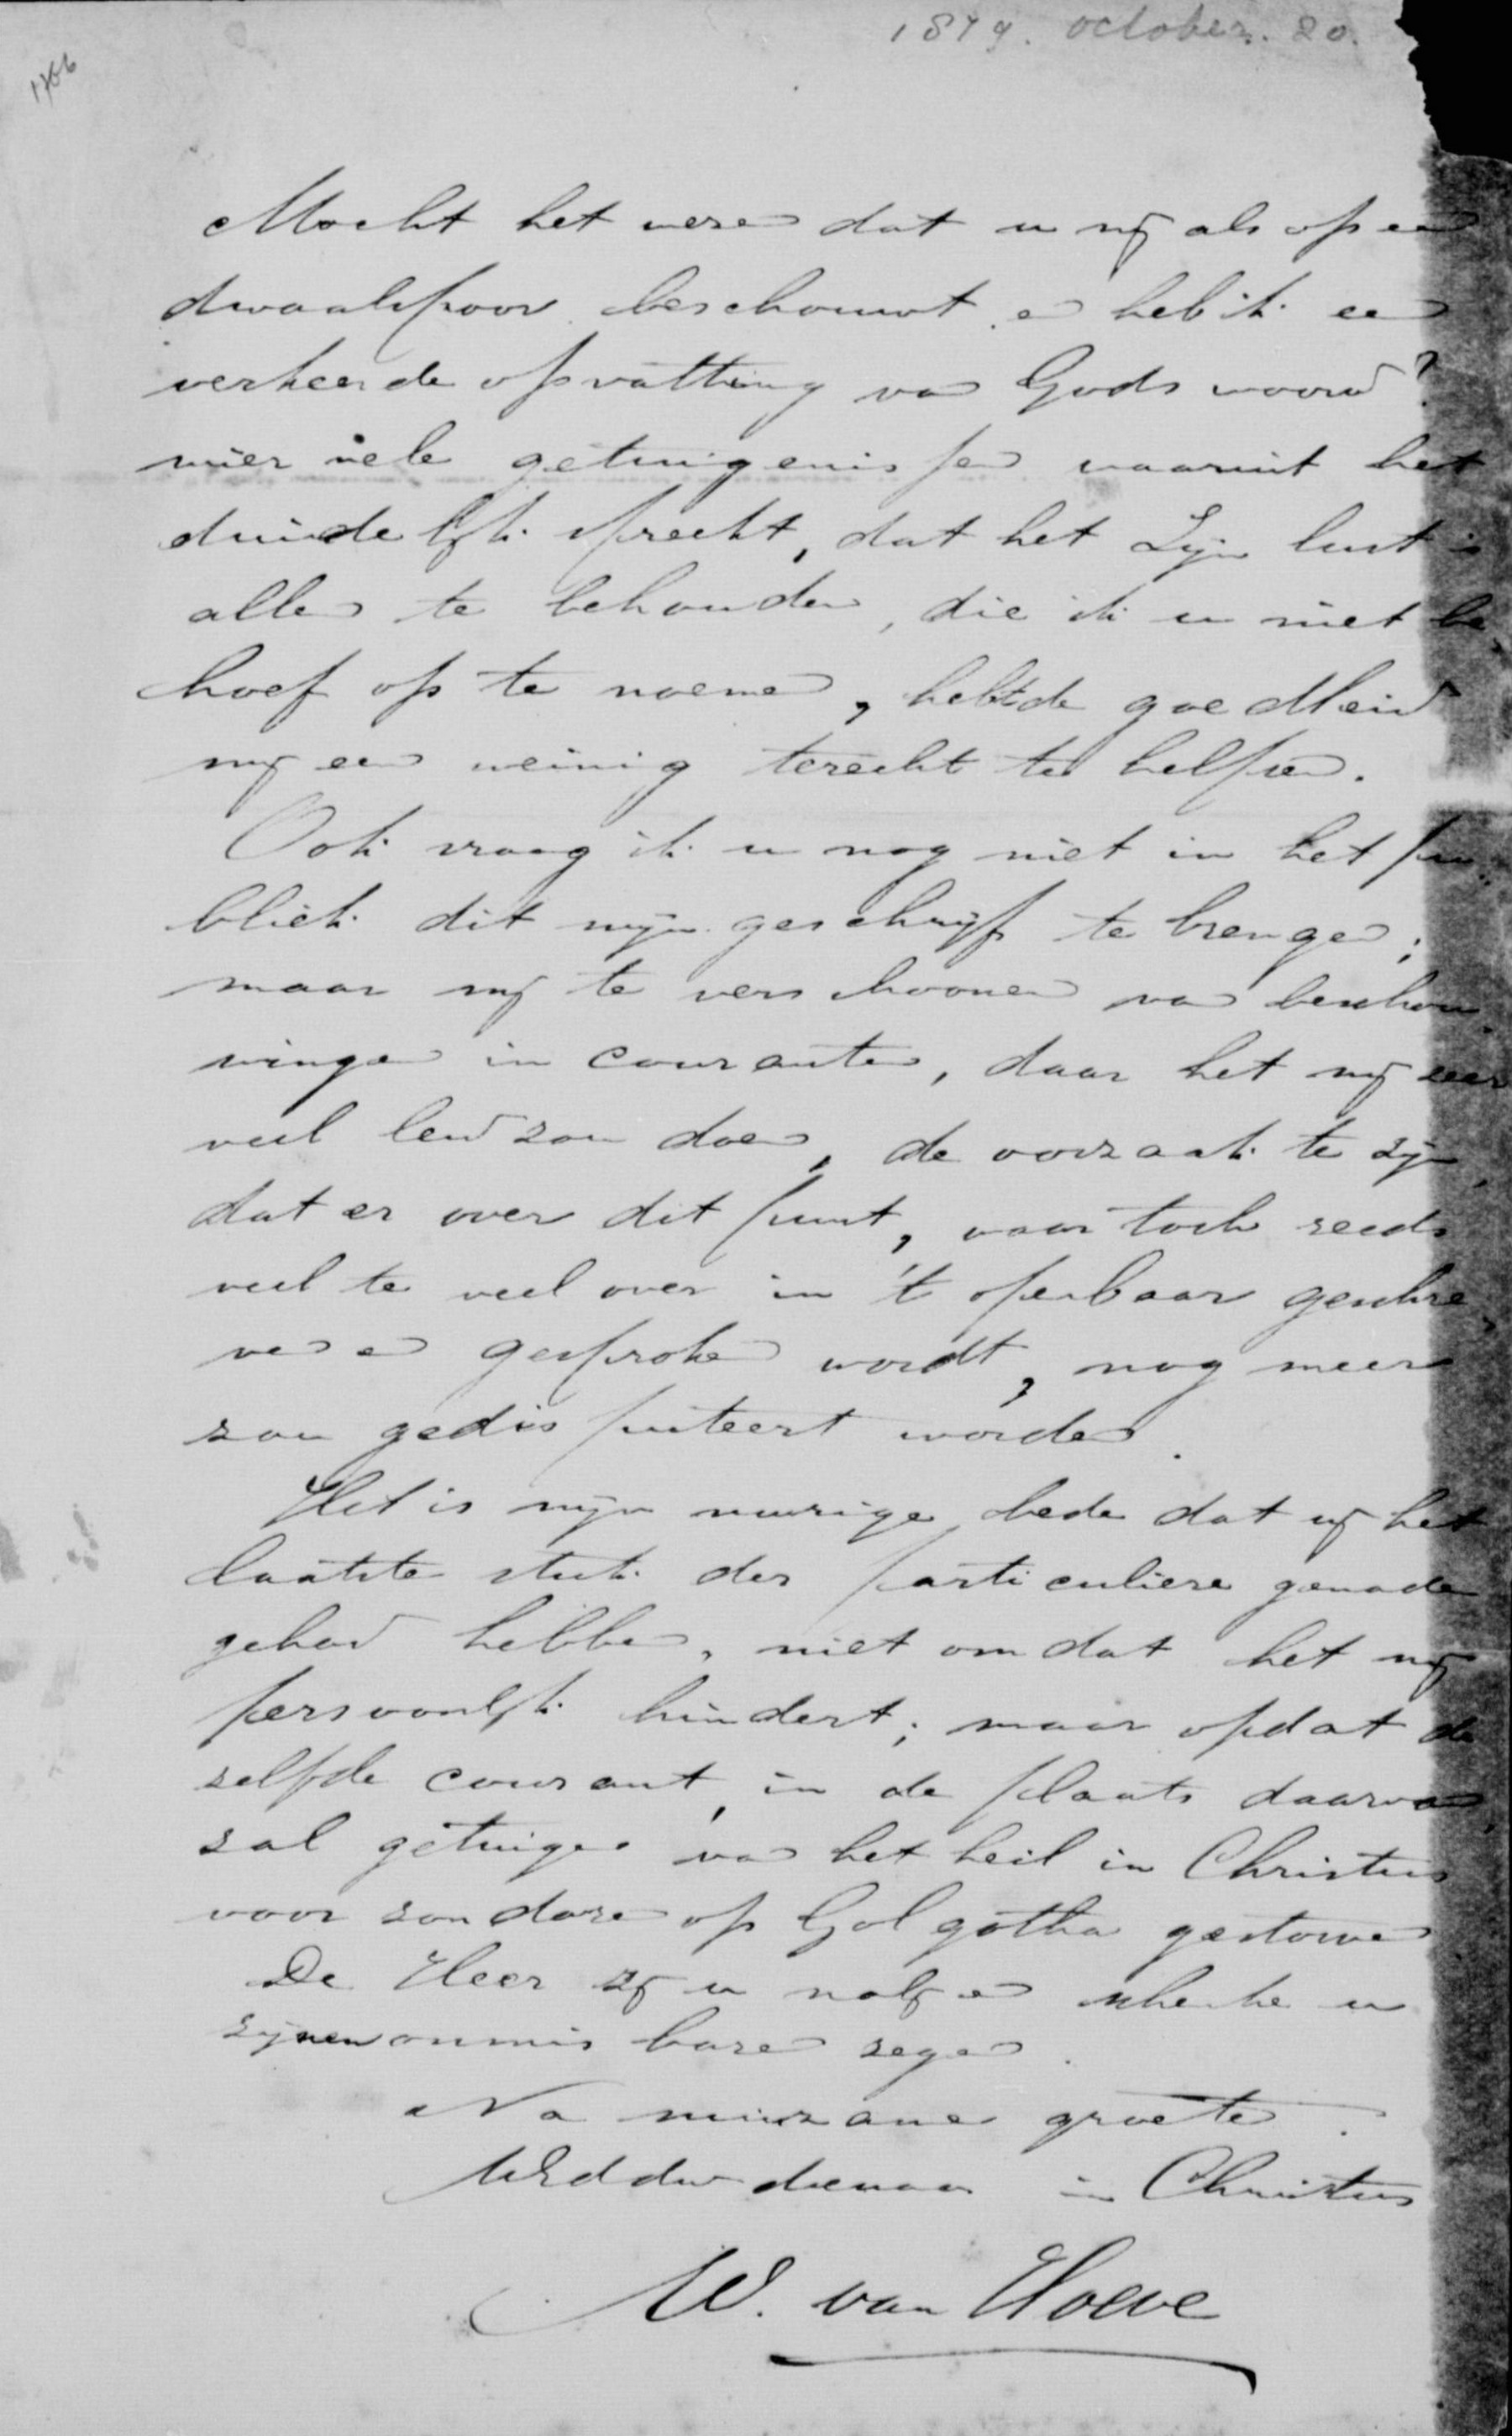 1879. october. 20.
1766
Mocht het wezen dat u mij als op een
dwaalspoor beschouwt en heb ik een
verkeerde opvatting van Gods woord?
vele getuigenissen waaruit het
duidelijk spreekt, dat het Zijn lust is
allen te behouden, die ik u niet be
hoef op te noemen, hebt de goedheid
mij een weinig terecht te helpen.
Ook vraag ik u nog niet in het pu
bliek dit mijn geschrijf te brengen;
maar mij te verschoonen van beschou
wingen in couranten, daar het mij zeer
veel leed zou doen, de oorzaak te zijn
dat er over dit punt, waar toch reeds
veel te veel over in 't openbaar geschre
ven en gesproken wordt, nog meer
zou gedisputeert worden.
Het is mijn vurige bede dat wij het
laatste stuk der particuliere genade
gehad hebben, niet omdat het mij
persoonlijk hindert; maar opdat de
zelfde courant, in de plaats daarvan
zal getuigen van het heil in Christus
voor zondaren op Golgotha gestorven
De Heer zij u nabij en schenke u
zijnen onmisbaren zegen.
Na minzame groeten.
UEd dw dienaar in Christus
W. van Hoeve